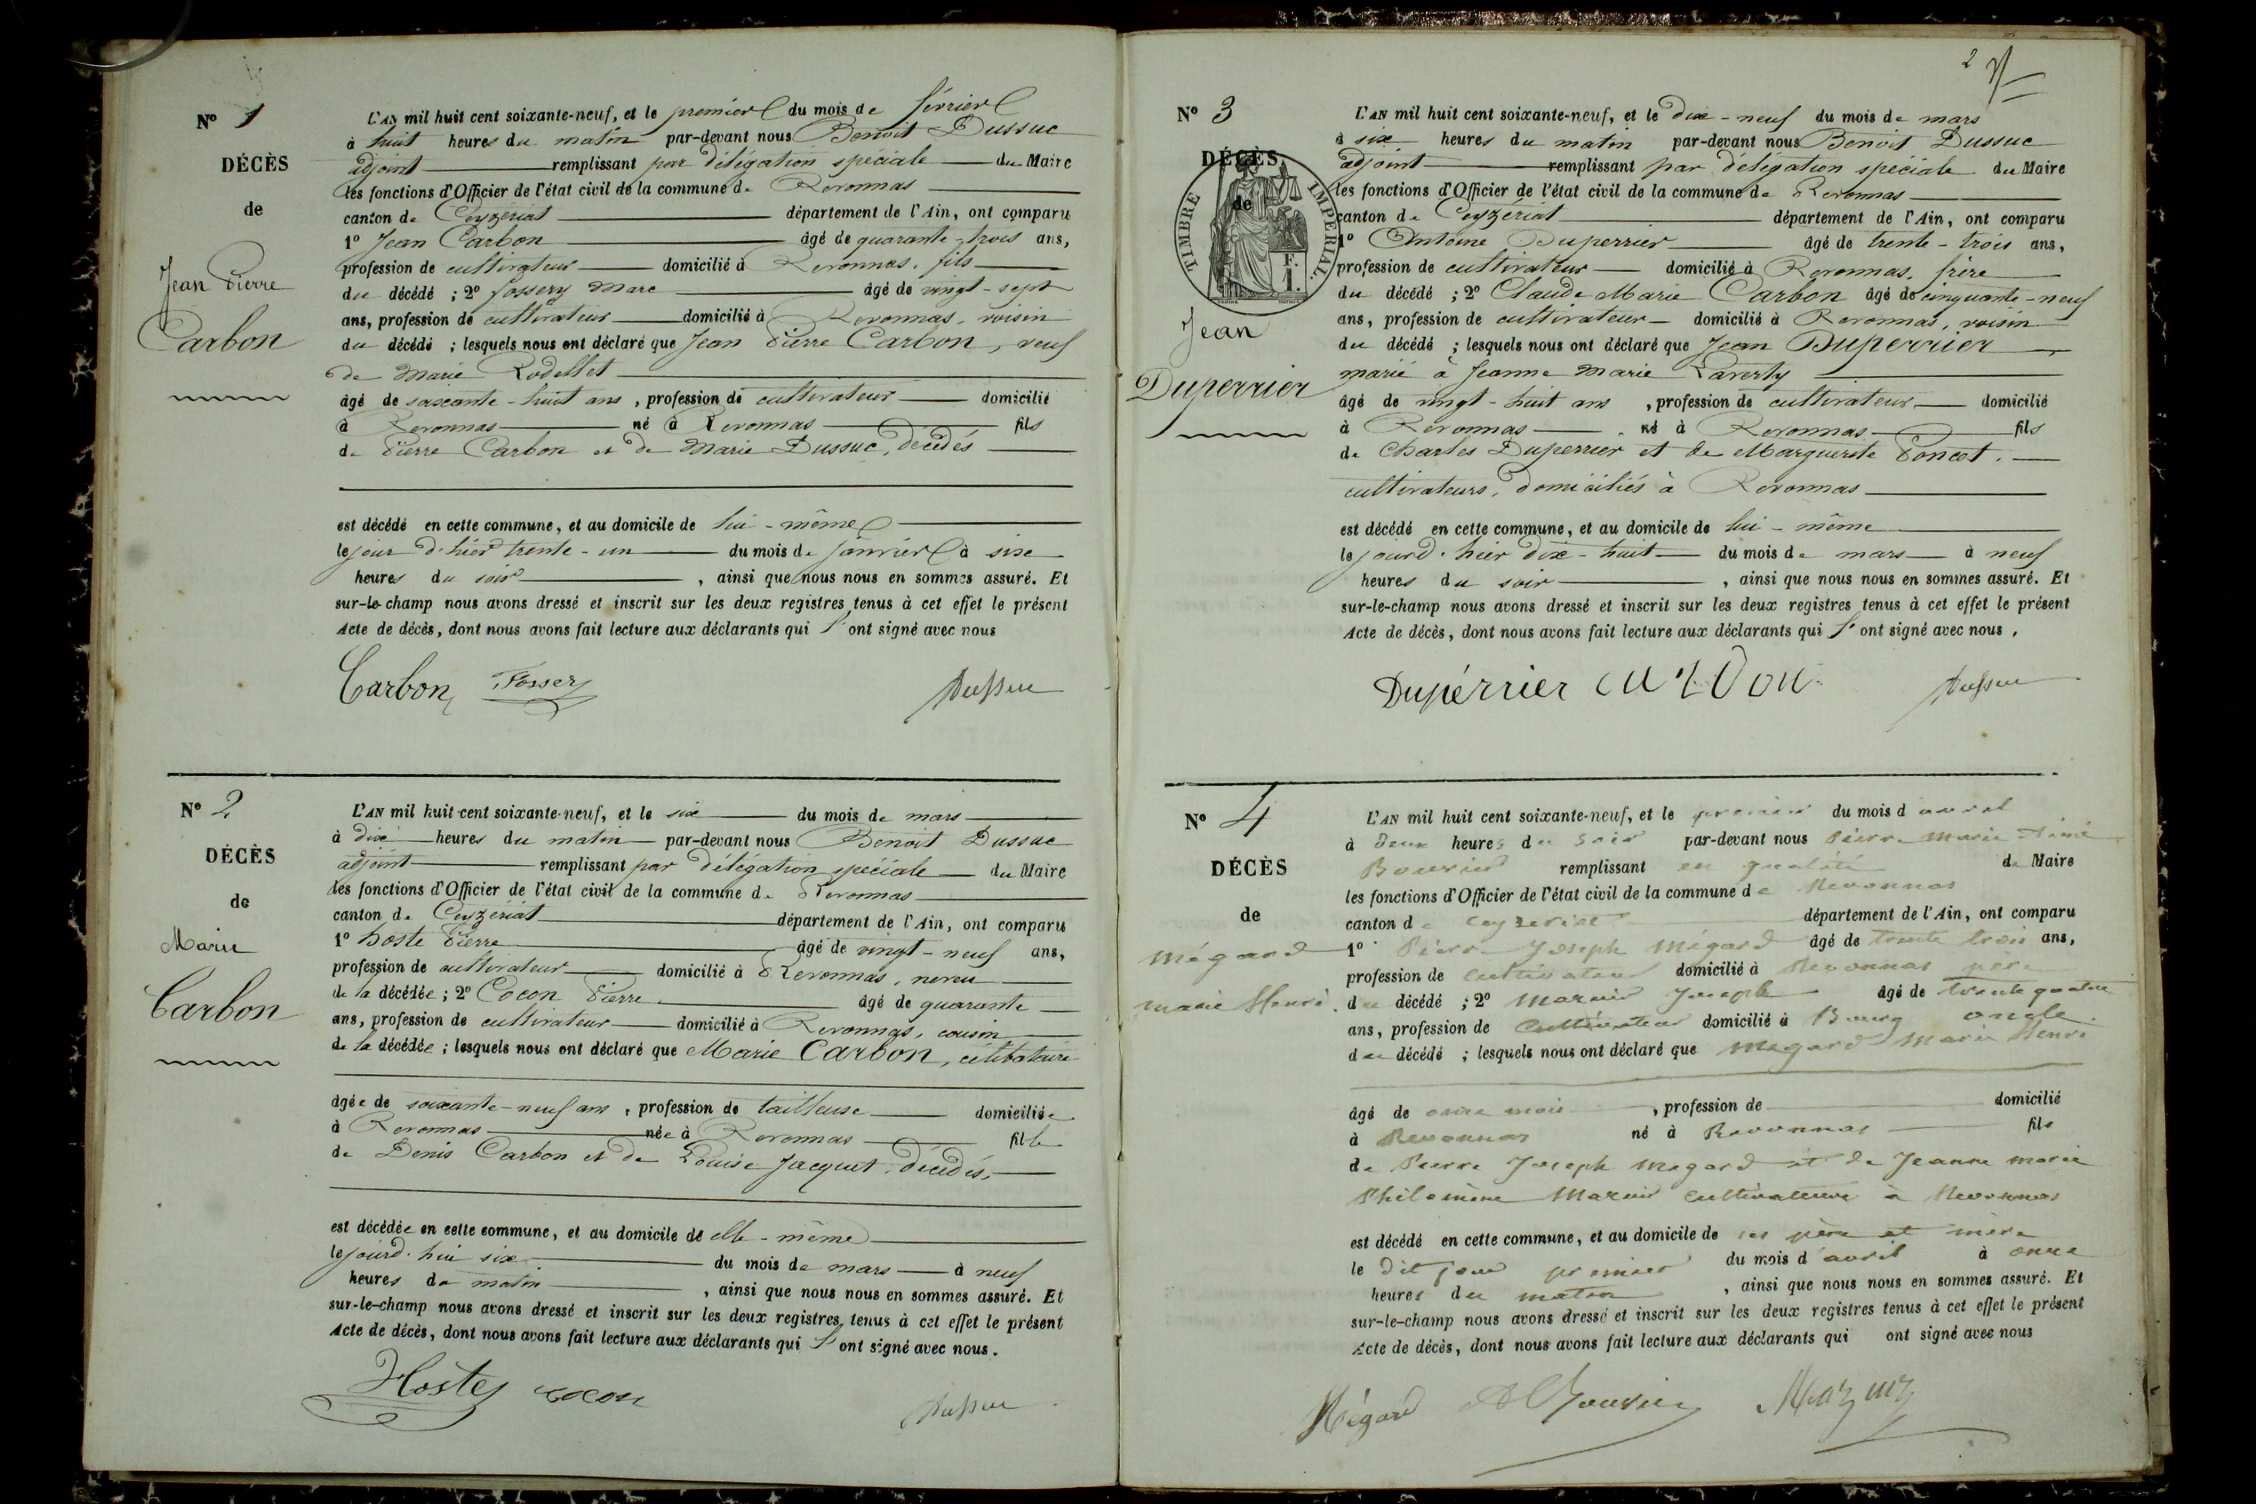 Nº 1
DÉCÈS
de
Jean Pierre
Carbon
L'AN mil huit cent soixante-neuf, et le premier du mois de février
à huit heures du matin par-devant nous Benoit Dussuc
adjoint remplissant par délégation spéciale du Maire
les fonctions d'Officier de l'état civil de la commune de Revonnas
canton de Ceyzériat département de l'Ain, ont comparu
1º Jean Carbon âgé de quarante-trois ans,
profession de cultivateur domicilié à Revonnas, fils
du décédé ; 2º Fossery Marc âgé de vingt-sept
ans, profession de cultivateur domicilié à Revonnas, voisin
du décédé ; lesquels nous ont déclaré que Jean Pierre Carbon, veuf
de Marie Rodellet
âgé de soixante-huit ans, profession de cultivateur domicilié
à Revonnas né à Revonnas fils
de Pierre Carbon et de Marie Dussuc, décédés
est décédé en cette commune, et au domicile de lui-même
le jour d'hier trente-un du mois de janvier à six
heures du soir, ainsi que nous nous en sommes assuré. Et
sur-le-champ nous avons dressé et inscrit sur les deux registres tenus à cet effet le présent
Acte de décès, dont nous avons fait lecture aux déclarants qui l'ont signé avec nous
Carbon Fossery Dussuc
Nº 2
DÉCÈS
de
Marie
Carbon
L'AN mil huit cent soixante-neuf, et le six du mois de mars
à dix heures du matin par-devant nous Benoit Dussuc
adjoint remplissant par délégation spéciale du Maire
les fonctions d'Officier de l'état civil de la commune de Revonnas
canton de Ceyzériat département de l'Ain, ont comparu
1º hoste Pierre âgé de vingt-neuf ans,
profession de cultivateur domicilié à Revonnas, neveu
de la décédée ; 2º Cocon Pierre âgé de quarante
ans, profession de cultivateur domicilié à Revonnas, cousin
de la décédée ; lesquels nous ont déclaré que Marie Carbon, célibataire
âgée de soixante-neuf ans, profession de tailleuse domiciliée
à Revonnas née à Revonnas fille
de Denis Carbon et de Louise Jacquet, décédés,
est décédée en cette commune, et au domicile de elle-même
le jourd'hui six du mois de mars à neuf
heures du matin, ainsi que nous nous en sommes assuré. Et
sur-le-champ nous avons dressé et inscrit sur les deux registres tenus à cet effet le présent
Acte de décès, dont nous avons fait lecture aux déclarants qui l'ont signé avec nous.
Hoste cocon Dussuc
2
Nº 3
DÉCÈS
de
TIMBRE IMPÉRIAL.
F.
1.
Jean
Duperrier
L'AN mil huit cent soixante-neuf, et le dix-neuf du mois de mars
à six heures du matin par-devant nous Benoit Dussuc
adjoint remplissant par délégation spéciale du Maire
les fonctions d'Officier de l'état civil de la commune de Revonnas
canton de Ceyzériat département de l'Ain, ont comparu
1º Antoine Duperrier âgé de trente-trois ans,
profession de cultivateur domicilié à Revonnas, frère
du décédé ; 2º Claude Marie Carbon âgé de cinquante-neuf
ans, profession de cultivateur domicilié à Revonnas, voisin
du décédé ; lesquels nous ont déclaré que Jean Duperrier,
marié à Jeanne Marie
âgé de vingt-huit ans, profession de cultivateur domicilié
à Revonnas né à Revonnas fils
de Charles Duperrier et de Marguerite Poncet,
cultivateurs, domiciliés à Revonnas
est décédé en cette commune, et au domicile de lui-même
le jourd'hier dix-huit du mois de mars à neuf
heures du soir, ainsi que nous nous en sommes assuré. Et
sur-le-champ nous avons dressé et inscrit sur les deux registres tenus à cet effet le présent
Acte de décès, dont nous avons fait lecture aux déclarants qui l'ont signé avec nous.
Dupérrier Dussuc
Nº 4
DÉCÈS
de
Mégard
Marie Henri.
L'AN mil huit cent soixante-neuf, et le premier du mois d'avril
à deux heures du soir par-devant nous Pierre Marie Aimé
Bouvier remplissant en qualité de Maire
les fonctions d'Officier de l'état civil de la commune de Revonnas
canton de Ceyzeriat département de l'Ain, ont comparu
1º Pierre Joseph Mégard âgé de trente trois ans,
profession de cultivateur domicilié à Revonnas père
du décédé ; 2º Mazuir Joseph âgé de trente quatre
ans, profession de cultivateur domicilié à Bourg oncle
du décédé ; lesquels nous ont déclaré que Megard Marie Henri
âgé de onze mois, profession de domicilié
à Revonnas né à Revonnas fils
de Pierre Joseph Megard et de Jeanne Marie
Philomène Mazuir cultivateurs à Revonnas
est décédé en cette commune, et au domicile de ses père et mère
le dit jour premier du mois d'avril à onze
heures du matin, ainsi que nous nous en sommes assuré. Et
sur-le-champ nous avons dressé et inscrit sur les deux registres tenus à cet effet le présent
Acte de décès, dont nous avons fait lecture aux déclarants qui ont signé avec nous
Mégard A Bouvier Mazuir